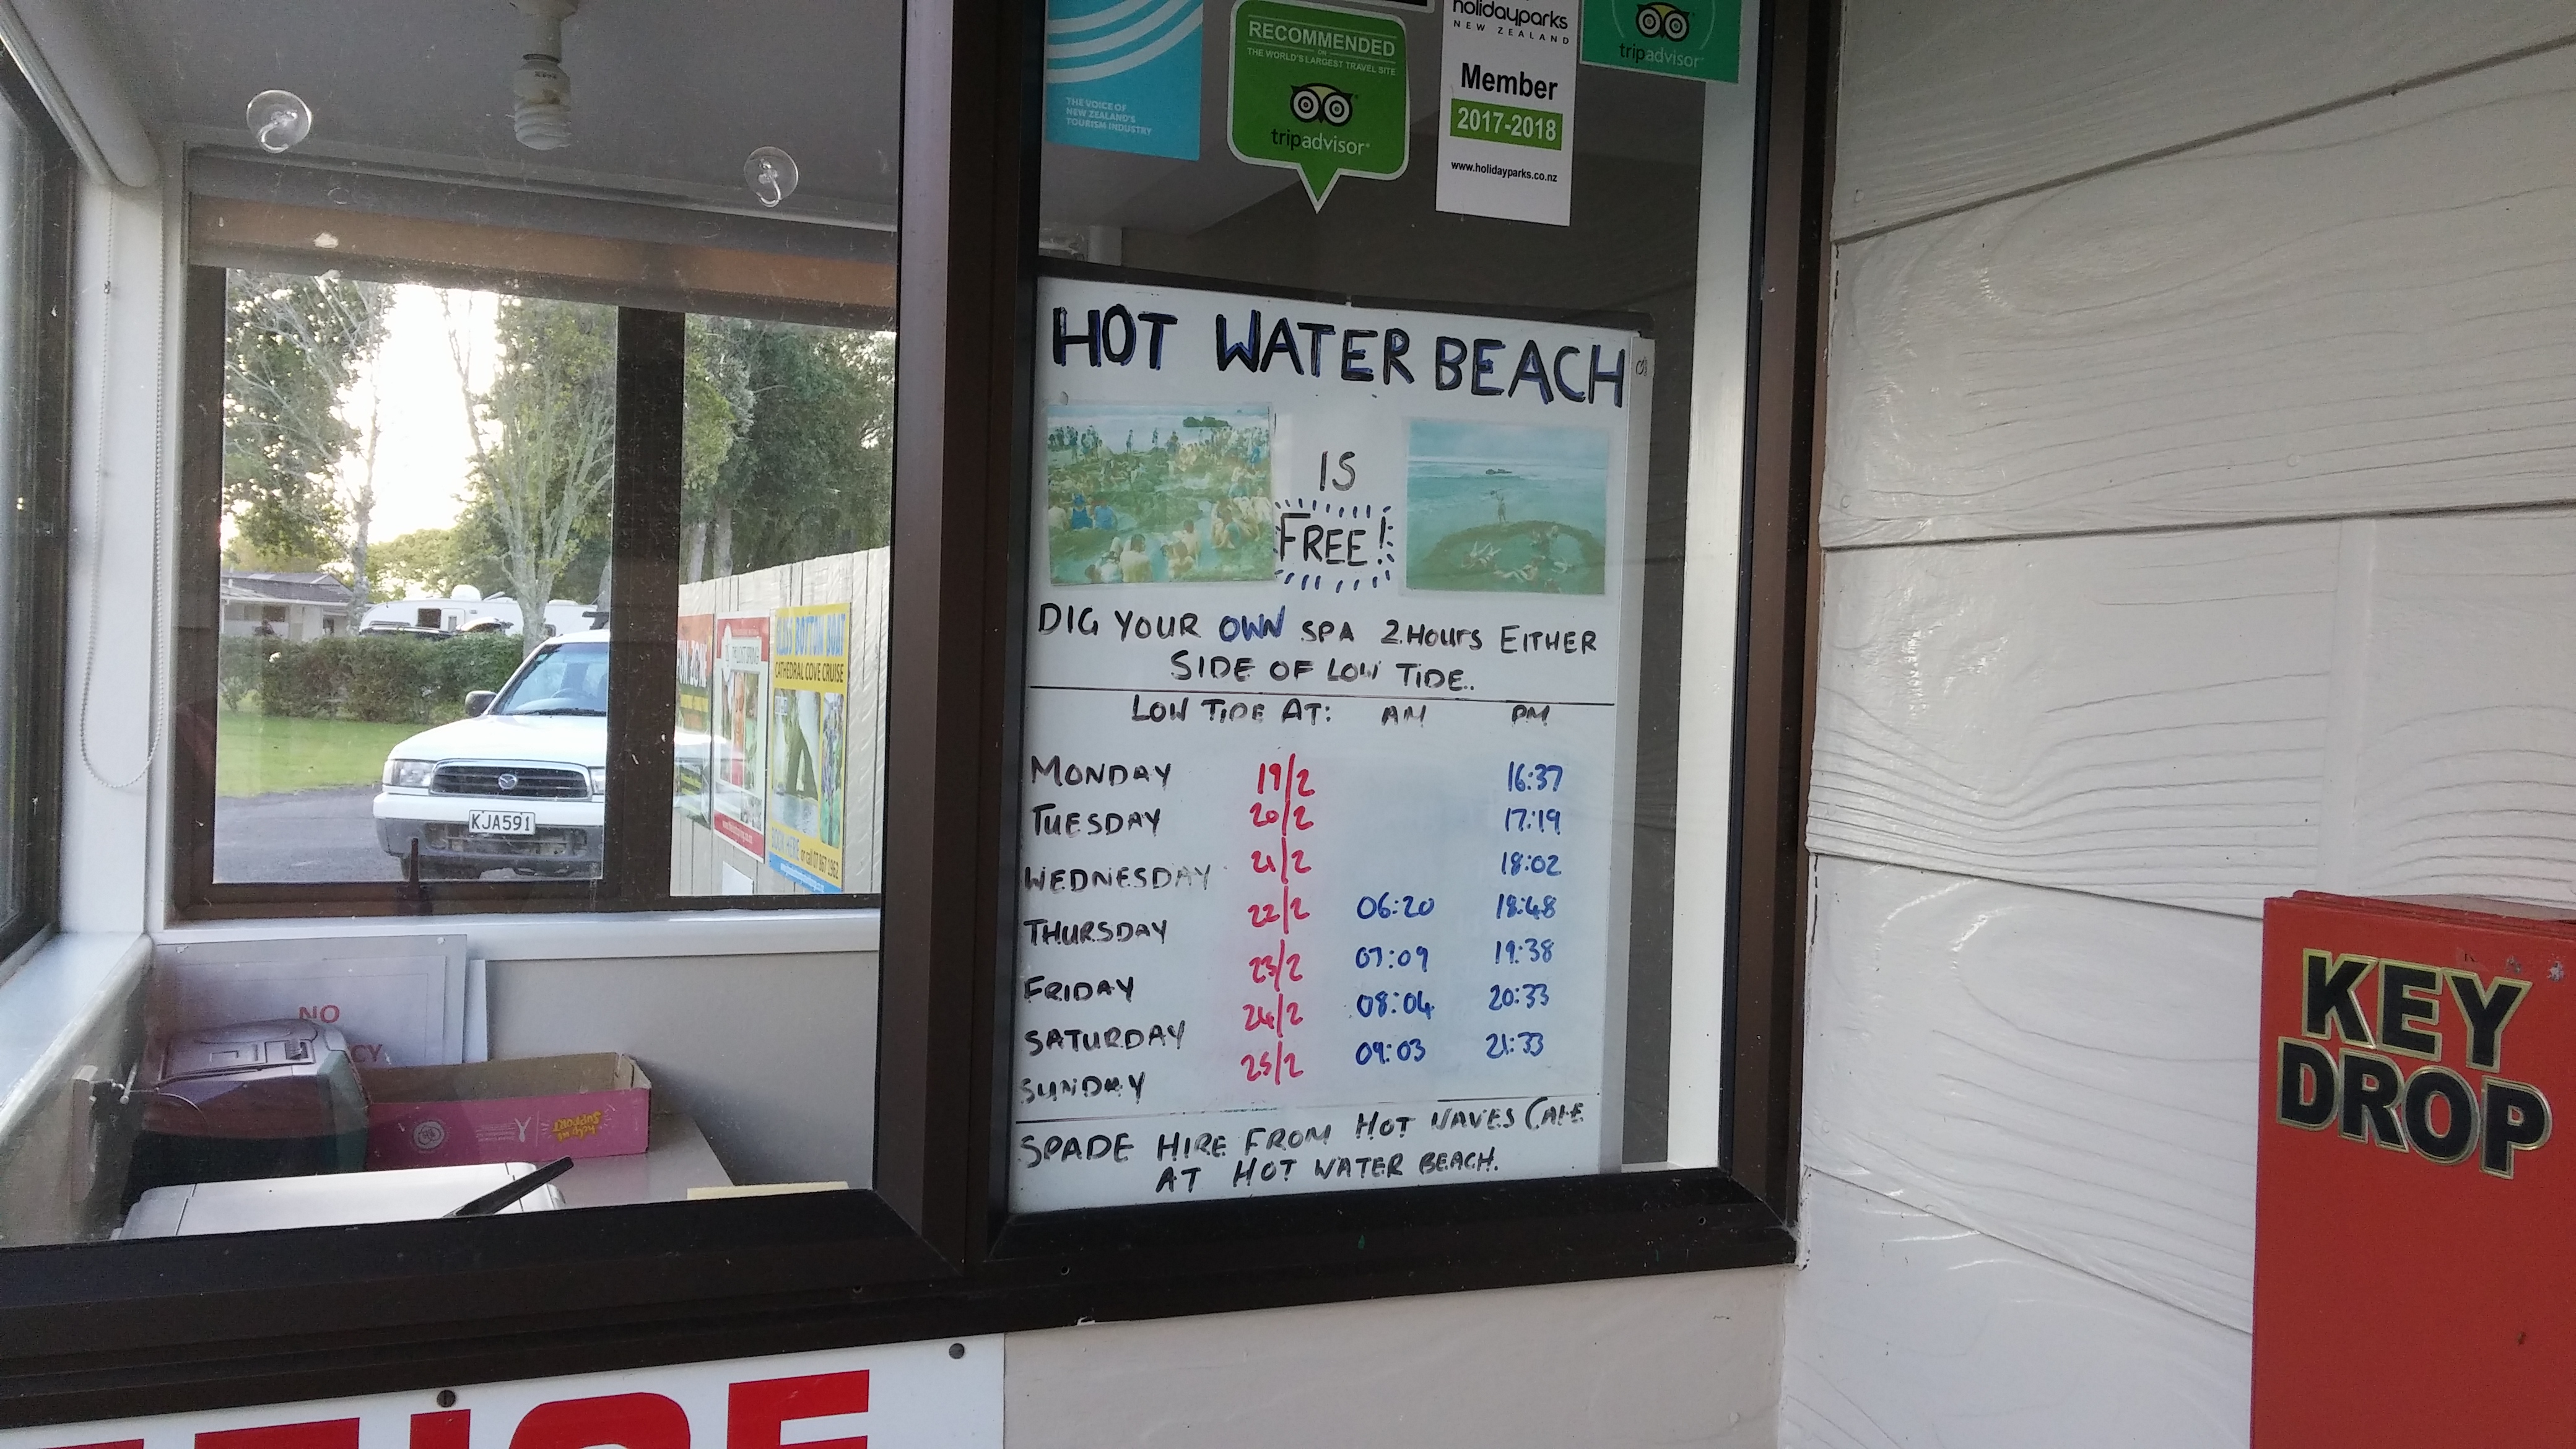 THE VOICE OF
NEW ZEALAND'S
TOURISM INDUSTRY
RECOMMENDED
ON
THE WORLD'S LARGEST TRAVEL SITE
tripadvisor
holidayparks
NEW ZEALAND
Member
2017-2018
www.holidayparks.co.nz
tripadvisor
HOT WATER BEACH
IS
FREE!
DIG YOUR OWN SPA 2 HOURS EITHER
SIDE OF LOW TIDE.
LOW TIDE AT: AM PM
MONDAY 19/2 16:37
TUESDAY 20/2 17:19
WEDNESDAY 21/2 18:02
THURSDAY 22/2 06:20 18:48
FRIDAY 23/2 07:09 19:38
SATURDAY 24/2 08:04 20:33
SUNDAY 25/2 09:03 21:33
SPADE HIRE FROM HOT WAVES CAFE
AT HOT WATER BEACH.
KJA591
BOTTOM BOAT
CATHEDRAL COVE CRUISE
BOOK HERE or call 07 867 1962
NO
CY
KEY
DROP